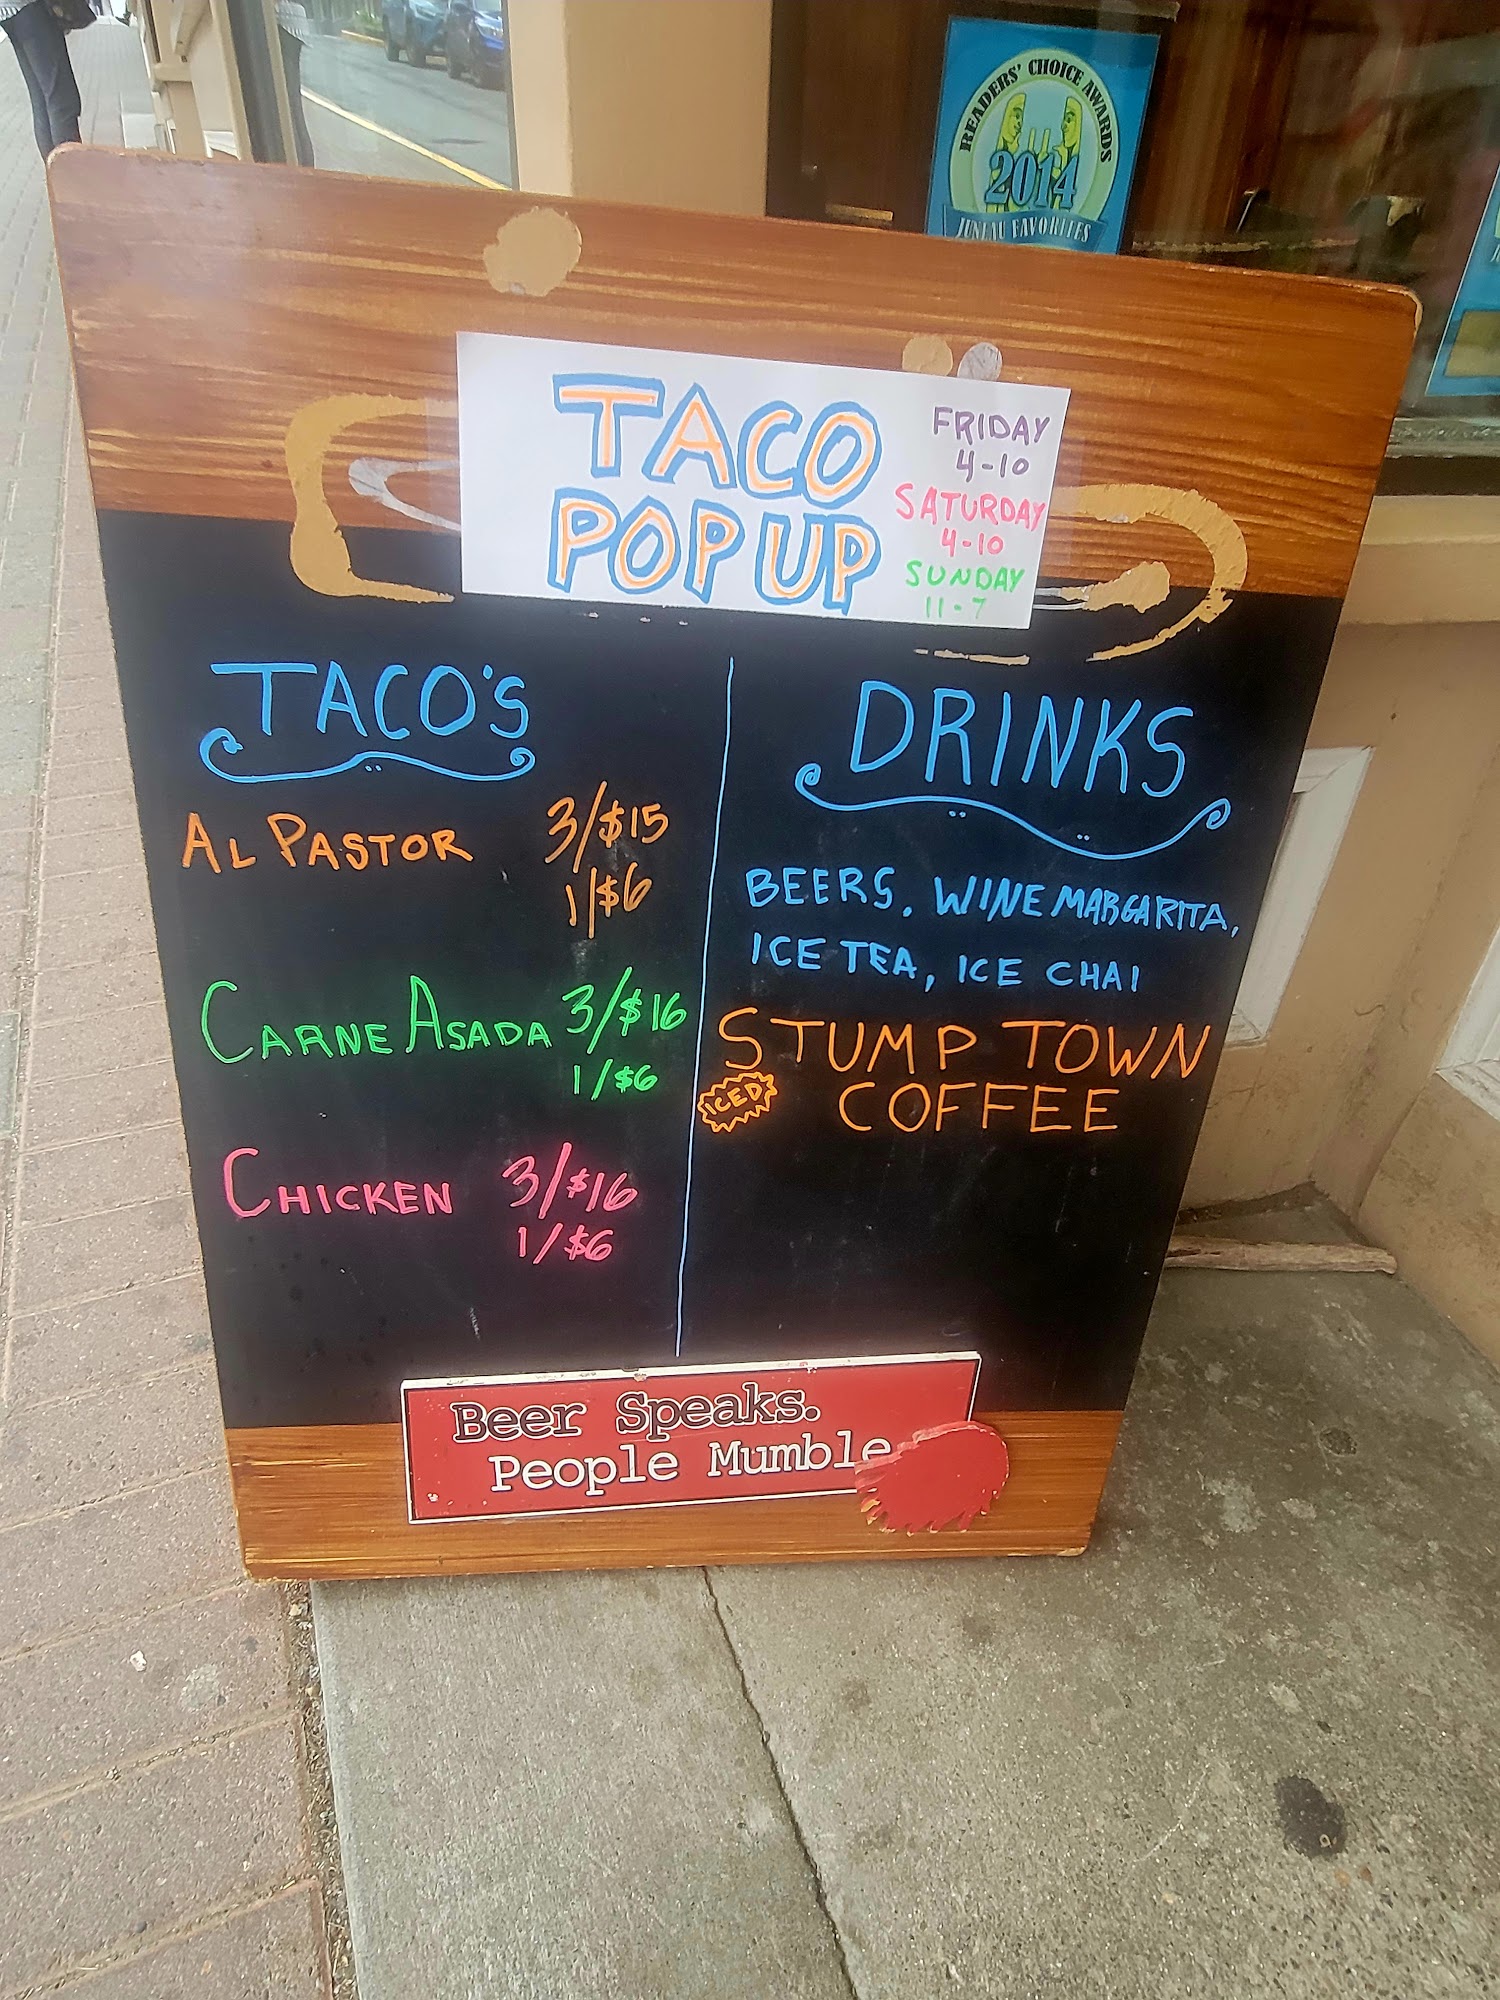 READERS' CHOICE AWARDS
2014
JUNEAU FAVORITES
TACO
POP UP
FRIDAY
4-10
SATURDAY
4-10
SUNDAY
11-7
TACO'S
AL PASTOR 3/$15
1/$6
CARNE ASADA 3/$16
1/$6
CHICKEN 3/$16
1/$6
DRINKS
BEERS, WINE MARGARITA,
ICE TEA, ICE CHAI
STUMP TOWN
ICED COFFEE
Beer Speaks.
People Mumble